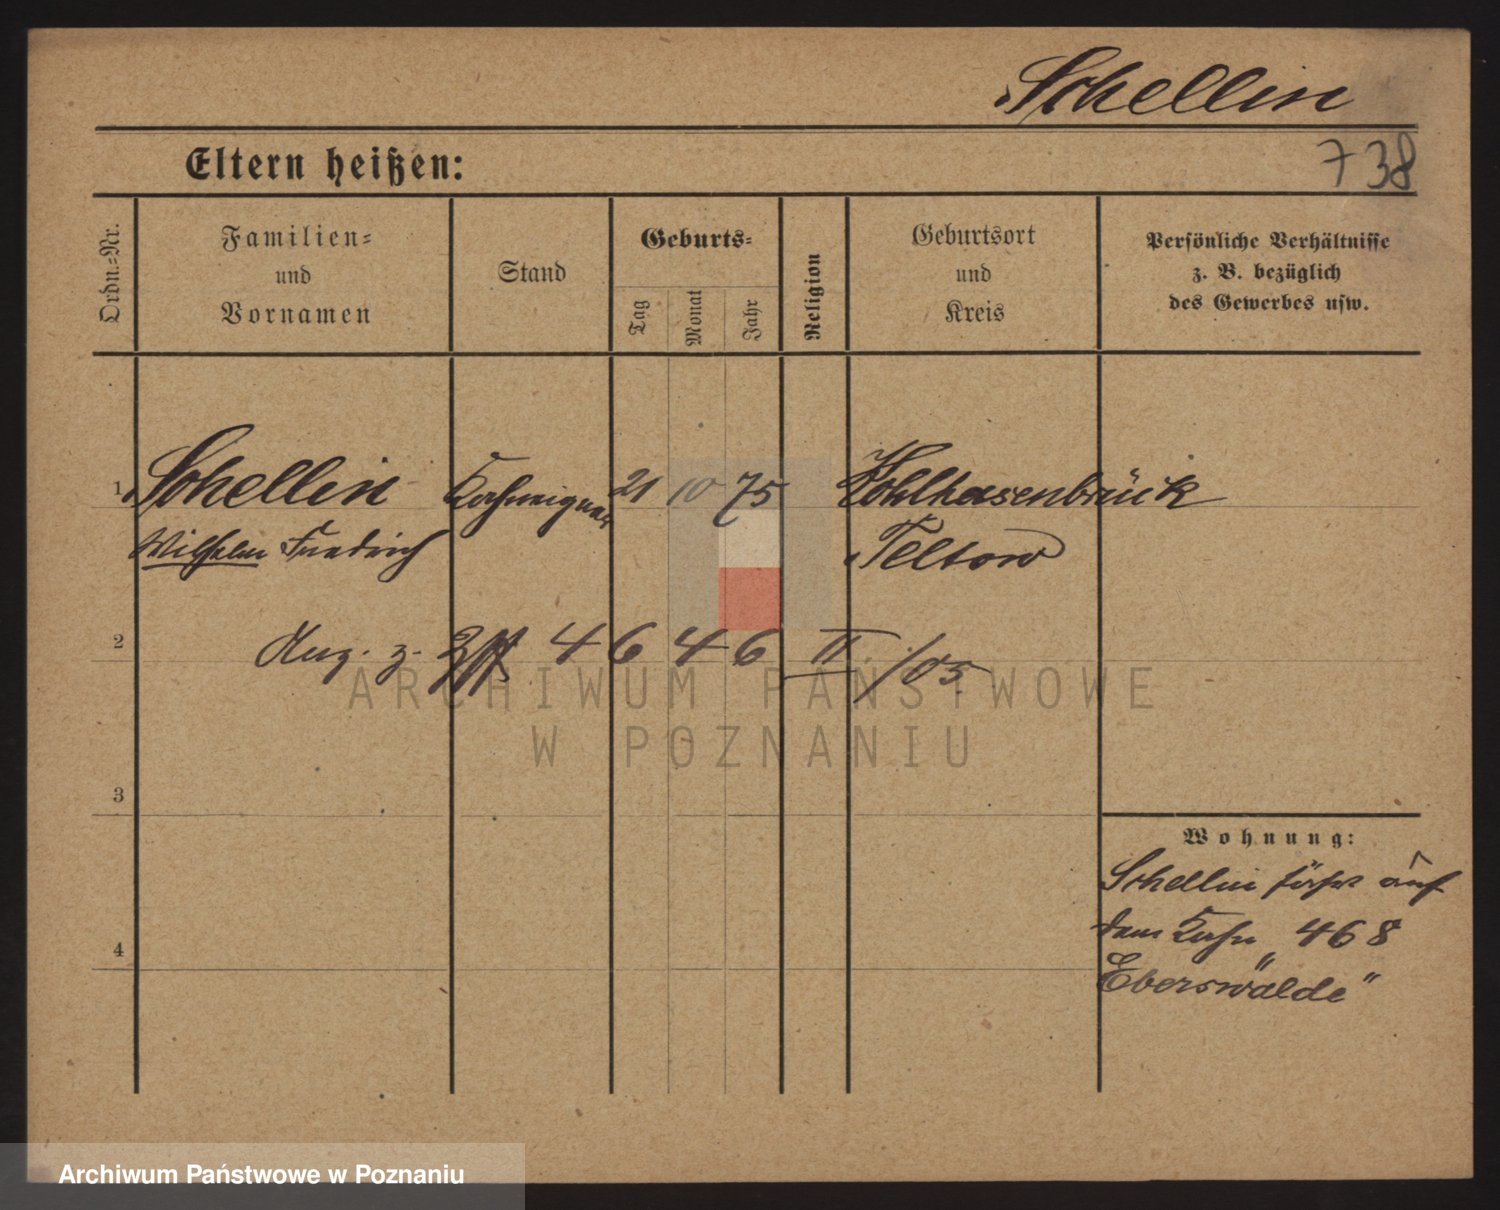 Schellin
Eltern heißen:
738
Ordn.-Nr.
Familien-
und
Vornamen
Stand
Geburts-
Tag
Monat
Jahr
Religion
Geburtsort
und
Kreis
Persönliche Verhältnisse
z. B. bezüglich
des Gewerbes usw.
1 Schellin Kahneigner 21 10 75 Kohlhasenbrück
Wilhelm Friedrich Teltow
2 Ang. z. 4646 II/05
ARCHIWUM PAŃSTWOWE
W POZNANIU
3
Wohnung:
Schellin fährt auf
dem Kahn 468
4
"Eberswalde"
Archiwum Państwowe w Poznaniu